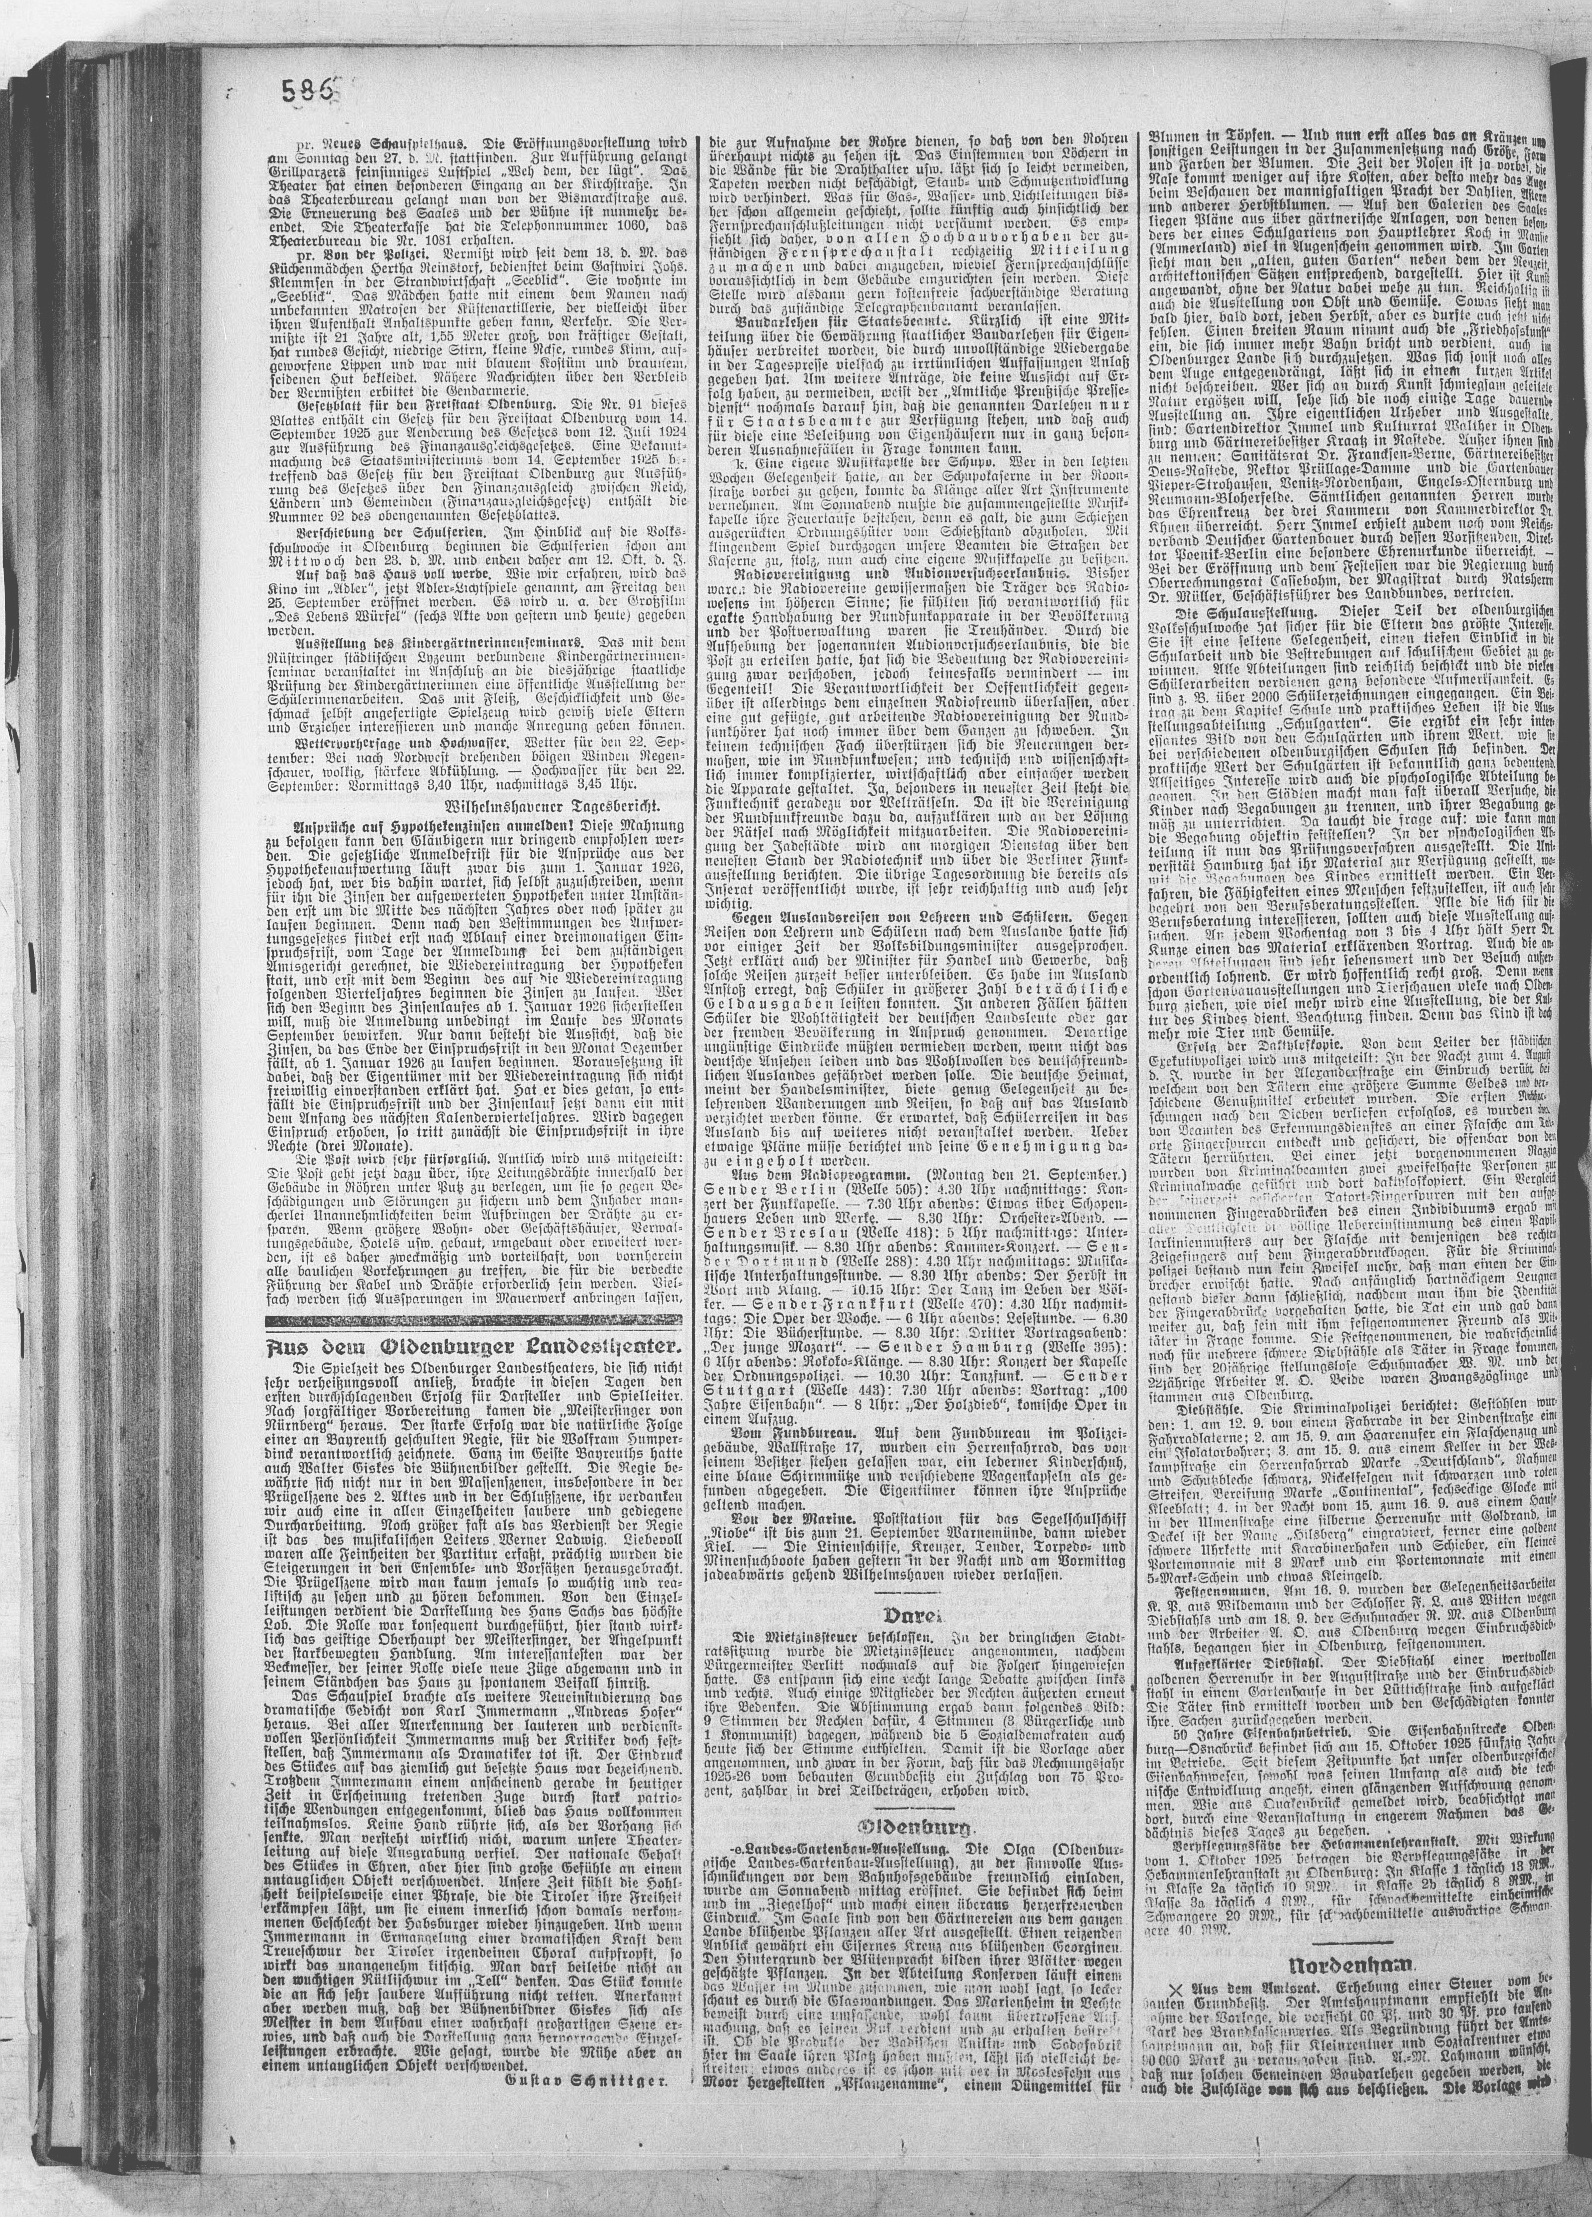 586
pr. Neues Schauspielhaus. Die Eröffnungsvorstellung wird
am Sonntag den 27. d. M. stattfinden. Zur Aufführung gelangt
Grillparzers feinsinniges Lustspiel „Weh dem, der lügt“. Das
Theater hat einen besonderen Eingang an der Kirchstraße. In
das Theaterbureau gelangt man von der Bismarckstraße aus.
Die Erneuerung des Saales und der Bühne ist nunmehr be-
endet. Die Theaterkasse hat die Telephonnummer 1060, das
Theaterbureau die Nr. 1081 erhalten.
pr. Von der Polizei. Vermißt wird seit dem 13. d. M. das
Küchenmädchen Hertha Reinstorf, bedienstet beim Gastwirt Johs.
Klemmsen in der Strandwirtschaft „Seeblick“. Sie wohnte im
„Seeblick“. Das Mädchen hatte mit einem dem Namen nach
unbekannten Matrosen der Küstenartillerie, der vielleicht über
ihren Aufenthalt Anhaltspunkte geben kann, Verkehr. Die Ver-
mißte ist 21 Jahre alt, 1,55 Meter groß, von kräftiger Gestalt,
hat rundes Gesicht, niedrige Stirn, kleine Nase, rundes Kinn, auf-
geworfene Lippen und war mit blauem Kostüm und braunem,
seidenen Hut bekleidet. Nähere Nachrichten über den Verbleib
der Vermißten erbittet die Gendarmerie.
Gesetzblatt für den Freistaat Oldenburg. Die Nr. 91 dieses
Blattes enthält ein Gesetz für den Freistaat Oldenburg vom 14.
September 1925 zur Aenderung des Gesetzes vom 12. Juli 1924
zur Ausführung des Finanzausgleichsgesetzes. Eine Bekannt-
machung des Staatsministeriums vom 14. September 1925 be-
treffend das Gesetz für den Freistaat Oldenburg zur Ausfüh-
rung des Gesetzes über den Finanzausgleich zwischen Reich,
Ländern und Gemeinden (Finanzausgleichsgesetz) enthält die
Nummer 92 des obengenannten Gesetzblattes.
Verschiebung der Schulferien. Im Hinblick auf die Volks-
schulwoche in Oldenburg beginnen die Schulferien schon am
Mittwoch den 23. d. M. und enden daher am 12. Okt. d. J.
Auf daß das Haus voll werde. Wie wir erfahren, wird das
Kino im „Adler“, jetzt Adler-Lichtspiele genannt, am Freitag den
25. September eröffnet werden. Es wird u. a. der Großfilm
„Des Lebens Würfel“ (sechs Akte von gestern und heute) gegeben
werden.
Ausstellung des Kindergärtnerinnenseminars. Das mit dem
Rüstringer städtischen Lyzeum verbundene Kindergärtnerinnen-
seminar veranstaltet im Anschluß an die diesjährige staatliche
Prüfung der Kindergärtnerinnen eine öffentliche Ausstellung der
Schülerinnenarbeiten. Das mit Fleiß, Geschicklichkeit und Ge-
schmack selbst angefertigte Spielzeug wird gewiß viele Eltern
und Erzieher interessieren und manche Anregung geben können.
Wettervorhersage und Hochwasser. Wetter für den 22. Sep-
tember: Bei nach Nordwest drehenden böigen Winden Regen-
schauer, wolkig, stärkere Abkühlung. — Hochwasser für den 22.
September: Vormittags 3,40 Uhr, nachmittags 3,45 Uhr.
Wilhelmshavener Tagesbericht.
Ansprüche auf Hypothekenzinsen anmelden! Diese Mahnung
zu befolgen kann den Gläubigern nur dringend empfohlen wer-
den. Die gesetzliche Anmeldefrist für die Ansprüche aus der
Hypothekenaufwertung läuft zwar bis zum 1. Januar 1926,
jedoch hat, wer bis dahin wartet, sich selbst zuzuschreiben, wenn
für ihn die Zinsen der aufgewerteten Hypotheken unter Umstän-
den erst um die Mitte des nächsten Jahres oder noch später zu
laufen beginnen. Denn nach den Bestimmungen des Aufwer-
tungsgesetzes findet erst nach Ablauf einer dreimonatigen Ein-
spruchsfrist, vom Tage der Anmeldung bei dem zuständigen
Amtsgericht gerechnet, die Wiedereintragung der Hypotheken
statt, und erst mit dem Beginn des auf die Wiedereintragung
folgenden Vierteljahres beginnen die Zinsen zu laufen. Wer
sich den Beginn des Zinsenlaufes ab 1. Januar 1926 sicherstellen
will, muß die Anmeldung unbedingt im Laufe des Monats
September bewirken. Nur dann besteht die Aussicht, daß die
Zinsen, da das Ende der Einspruchsfrist in den Monat Dezember
fällt, ab 1. Januar 1926 zu laufen beginnen. Voraussetzung ist
dabei, daß der Eigentümer mit der Wiedereintragung sich nicht
freiwillig einverstanden erklärt hat. Hat er dies getan, so ent-
fällt die Einspruchsfrist und der Zinsenlauf setzt dann ein mit
dem Anfang des nächsten Kalendervierteljahres. Wird dagegen
Einspruch erhoben, so tritt zunächst die Einspruchsfrist in ihre
Rechte (drei Monate).
Die Post wird sehr fürsorglich. Amtlich wird uns mitgeteilt:
Die Post geht jetzt dazu über, ihre Leitungsdrähte innerhalb der
Gebäude in Röhren unter Putz zu verlegen, um sie so gegen Be-
schädigungen und Störungen zu sichern und dem Inhaber man-
cherlei Unannehmlichkeiten beim Aufbringen der Drähte zu er-
sparen. Wenn größere Wohn- oder Geschäftshäuser, Verwal-
tungsgebäude, Hotels usw. gebaut, umgebaut oder erweitert wer-
den, ist es daher zweckmäßig und vorteilhaft, von vornherein
alle baulichen Vorkehrungen zu treffen, die für die verdeckte
Führung der Kabel und Drähte erforderlich sein werden. Viel-
fach werden sich Aussparungen im Mauerwerk anbringen lassen,
Aus dem Oldenburger Landestheater.
Die Spielzeit des Oldenburger Landestheaters, die sich nicht
sehr verheißungsvoll anließ, brachte in diesen Tagen den
ersten durchschlagenden Erfolg für Darsteller und Spielleiter.
Nach sorgfältiger Vorbereitung kamen die „Meistersinger von
Nürnberg“ heraus. Der starke Erfolg war die natürliche Folge
einer an Bayreuth geschulten Regie, für die Wolfram Humper-
dinck verantwortlich zeichnete. Ganz im Geiste Bayreuths hatte
auch Walter Giskes die Bühnenbilder gestellt. Die Regie be-
währte sich nicht nur in den Massenszenen, insbesondere in der
Prügelszene des 2. Aktes und in der Schlußszene, ihr verdanken
wir auch eine in allen Einzelheiten saubere und gediegene
Durcharbeitung. Noch größer fast als das Verdienst der Regie
ist das des musikalischen Leiters Werner Ladwig. Liebevoll
waren alle Feinheiten der Partitur erfaßt, prächtig wurden die
Steigerungen in den Ensemble- und Vorsätzen herausgebracht.
Die Prügelszene wird man kaum jemals so wuchtig und rea-
listisch zu sehen und zu hören bekommen. Von den Einzel-
leistungen verdient die Darstellung des Hans Sachs das höchste
Lob. Die Rolle war konsequent durchgeführt, hier stand wirk-
lich das geistige Oberhaupt der Meistersinger, der Angelpunkt
der starkbewegten Handlung. Am interessantesten war der
Beckmesser, der seiner Rolle viele neue Züge abgewann und in
seinem Ständchen das Haus zu spontanem Beifall hinriß.
Das Schauspiel brachte als weitere Neueinstudierung das
dramatische Gedicht von Karl Immermann „Andreas Hofer“
heraus. Bei aller Anerkennung der lauteren und verdienst-
vollen Persönlichkeit Immermanns muß der Kritiker doch fest-
stellen, daß Immermann als Dramatiker tot ist. Der Eindruck
des Stückes auf das ziemlich gut besetzte Haus war bezeichnend.
Trotzdem Immermann einem anscheinend gerade in heutiger
Zeit in Erscheinung tretenden Zuge durch stark patrio-
tische Wendungen entgegenkommt, blieb das Haus vollkommen
teilnahmslos. Keine Hand rührte sich, als der Vorhang sich
senkte. Man versteht wirklich nicht, warum unsere Theater-
leitung auf diese Ausgrabung verfiel. Der nationale Gehalt
des Stückes in Ehren, aber hier sind große Gefühle an einem
untauglichen Objekt verschwendet. Unsere Zeit fühlt die Hohl-
heit beispielsweise einer Phrase, die die Tiroler ihre Freiheit
erkämpfen läßt, um sie einem innerlich schon damals verkom-
menen Geschlecht der Habsburger wieder hinzugeben. Und wenn
Immermann in Ermangelung einer dramatischen Kraft dem
Treueschwur der Tiroler irgendeinen Choral aufpfropft, so
wirkt das unangenehm kitschig. Man darf beileibe nicht an
den wuchtigen Rütlischwur im „Tell“ denken. Das Stück konnte
die an sich sehr saubere Aufführung nicht retten. Anerkannt
aber werden muß, daß der Bühnenbildner Giskes sich als
Meister in dem Aufbau einer wahrhaft großartigen Szene er-
wies, und daß auch die Darstellung ganz hervorragende Einzel-
leistungen erbrachte. Wie gesagt, wurde die Mühe aber an
einem untauglichen Objekt verschwendet.
Gustav Schnittger.
die zur Aufnahme der Rohre dienen, so daß von den Rohren
überhaupt nichts zu sehen ist. Das Einstemmen von Löchern in
die Wände für die Drahthalter usw. läßt sich so leicht vermeiden,
Tapeten werden nicht beschädigt, Staub- und Schmutzentwicklung
wird verhindert. Was für Gas-, Wasser- und Lichtleitungen bis-
her schon allgemein geschieht, sollte künftig auch hinsichtlich der
Fernsprechanschlußleitungen nicht versäumt werden. Es emp-
fiehlt sich daher, von allen Hochbauvorhaben der zu-
ständigen Fernsprechanstalt rechtzeitig Mitteilung
zu machen und dabei anzugeben, wieviel Fernsprechanschlüsse
voraussichtlich in dem Gebäude einzurichten sein werden. Diese
Stelle wird alsdann gern kostenfreie sachverständige Beratung
durch das zuständige Telegraphenbauamt veranlassen.
Baudarlehen für Staatsbeamte. Kürzlich ist eine Mit-
teilung über die Gewährung staatlicher Baudarlehen für Eigen-
häuser verbreitet worden, die durch unvollständige Wiedergabe
in der Tagespresse vielfach zu irrtümlichen Auffassungen Anlaß
gegeben hat. Um weitere Anträge, die keine Aussicht auf Er-
folg haben, zu vermeiden, weist der „Amtliche Preußische Presse-
dienst“ nochmals darauf hin, daß die genannten Darlehen nur
für Staatsbeamte zur Verfügung stehen, und daß auch
für diese eine Beleihung von Eigenhäusern nur in ganz beson-
deren Ausnahmefällen in Frage kommen kann.
k. Eine eigene Musikkapelle der Schupo. Wer in den letzten
Wochen Gelegenheit hatte, an der Schupokaserne in der Roon-
straße vorbei zu gehen, konnte da Klänge aller Art Instrumente
vernehmen. Am Sonnabend mußte die zusammengestellte Musik-
kapelle ihre Feuertaufe bestehen, denn es galt, die zum Schießen
ausgerückten Ordnungshüter vom Schießstand abzuholen. Mit
klingendem Spiel durchzogen unsere Beamten die Straßen der
Kaserne zu, stolz, nun auch eine eigene Musikkapelle zu besitzen.
Radiovereinigung und Audionversuchserlaubnis. Bisher
waren die Radiovereine gewissermaßen die Träger des Radio-
wesens im höheren Sinne; sie fühlten sich verantwortlich für
exakte Handhabung der Rundfunkapparate in der Bevölkerung
und der Postverwaltung waren sie Treuhänder. Durch die
Aufhebung der sogenannten Audionversuchserlaubnis, die die
Post zu erteilen hatte, hat sich die Bedeutung der Radiovereini-
gung zwar verschoben, jedoch keinesfalls vermindert — im
Gegenteil! Die Verantwortlichkeit der Oeffentlichkeit gegen-
über ist allerdings dem einzelnen Radiofreund überlassen, aber
eine gut gefügte, gut arbeitende Radiovereinigung der Rund-
funkhörer hat noch immer über dem Ganzen zu schweben. In
keinem technischen Fach überstürzen sich die Neuerungen der-
maßen, wie im Rundfunkwesen; und technisch und wissenschaft-
lich immer komplizierter, wirtschaftlich aber einfacher werden
die Apparate gestaltet. Ja, besonders in neuester Zeit steht die
Funktechnik geradezu vor Welträtseln. Da ist die Vereinigung
der Rundfunkfreunde dazu da, aufzuklären und an der Lösung
der Rätsel nach Möglichkeit mitzuarbeiten. Die Radiovereini-
gung der Jadestädte wird am morgigen Dienstag über den
neuesten Stand der Radiotechnik und über die Berliner Funk-
ausstellung berichten. Die übrige Tagesordnung die bereits als
Inserat veröffentlicht wurde, ist sehr reichhaltig und auch sehr
wichtig.
Gegen Auslandsreisen von Lehrern und Schülern. Gegen
Reisen von Lehrern und Schülern nach dem Auslande hatte sich
vor einiger Zeit der Volksbildungsminister ausgesprochen.
Jetzt erklärt auch der Minister für Handel und Gewerbe, daß
solche Reisen zurzeit besser unterbleiben. Es habe im Ausland
Anstoß erregt, daß Schüler in größerer Zahl beträchtliche
Geldausgaben leisten konnten. In anderen Fällen hätten
Schüler die Wohltätigkeit der deutschen Landsleute oder gar
der fremden Bevölkerung in Anspruch genommen. Derartige
ungünstige Eindrücke müßten vermieden werden, wenn nicht das
deutsche Ansehen leiden und das Wohlwollen des deutschfreund-
lichen Auslandes gefährdet werden solle. Die deutsche Heimat,
meint der Handelsminister, biete genug Gelegenheit zu be-
lehrenden Wanderungen und Reisen, so daß auf das Ausland
verzichtet werden könne. Er erwartet, daß Schülerreisen in das
Ausland bis auf weiteres nicht veranstaltet werden. Ueber
etwaige Pläne müsse berichtet und seine Genehmigung da-
zu eingeholt werden.
Aus dem Radioprogramm. (Montag den 21. September.)
Sender Berlin (Welle 505): 4.30 Uhr nachmittags: Kon-
zert der Funkkapelle. — 7.30 Uhr abends: Etwas über Schopen-
hauers Leben und Werke. — 8.30 Uhr: Orchester-Abend. —
Sender Breslau (Welle 418): 5 Uhr nachmittags: Unter-
haltungsmusik. — 8.30 Uhr abends: Kammer-Konzert. — Sen-
der Dortmund (Welle 288): 4.30 Uhr nachmittags: Musika-
lische Unterhaltungsstunde. — 8.30 Uhr abends: Der Herbst in
Wort und Klang. — 10.15 Uhr: Der Tanz im Leben der Völ-
ker. — Sender Frankfurt (Welle 470): 4.30 Uhr nachmit-
tags: Die Oper der Woche. — 6 Uhr abends: Lesestunde. — 6.30
Uhr: Die Bücherstunde. — 8.30 Uhr: Dritter Vortragsabend:
„Der junge Mozart“. — Sender Hamburg (Welle 395):
6 Uhr abends: Rokoko-Klänge. — 8.30 Uhr: Konzert der Kapelle
der Ordnungspolizei. — 10.30 Uhr: Tanzfunk. — Sender
Stuttgart (Welle 443): 7.30 Uhr abends: Vortrag: „100
Jahre Eisenbahn“. — 8 Uhr: „Der Holzdieb“, komische Oper in
einem Aufzug.
Vom Fundbureau. Auf dem Fundbureau im Polizei-
gebäude, Wallstraße 17, wurden ein Herrenfahrrad, das von
seinem Besitzer stehen gelassen war, ein lederner Kinderschuh,
eine blaue Schirmmütze und verschiedene Wagenkapseln als ge-
funden abgegeben. Die Eigentümer können ihre Ansprüche
geltend machen.
Von der Marine. Poststation für das Segelschulschiff
„Niobe“ ist bis zum 21. September Warnemünde, dann wieder
Kiel. — Die Linienschiffe, Kreuzer, Tender, Torpedo- und
Minensuchboote haben gestern in der Nacht und am Vormittag
jadeabwärts gehend Wilhelmshaven wieder verlassen.
Varel
Die Mietzinssteuer beschlossen. In der dringlichen Stadt-
ratssitzung wurde die Mietzinssteuer angenommen, nachdem
Bürgermeister Verlitt nochmals auf die Folgen hingewiesen
hatte. Es entspann sich eine recht lange Debatte zwischen links
und rechts. Auch einige Mitglieder der Rechten äußerten erneut
ihre Bedenken. Die Abstimmung ergab dann folgendes Bild:
9 Stimmen der Rechten dafür, 4 Stimmen (3 Bürgerliche und
1 Kommunist) dagegen, während die 5 Sozialdemokraten auch
heute sich der Stimme enthielten. Damit ist die Vorlage aber
angenommen, und zwar in der Form, daß für das Rechnungsjahr
1925-26 vom bebauten Grundbesitz ein Zuschlag von 75 Pro-
zent, zahlbar in drei Teilbeträgen, erhoben wird.
Oldenburg.
-e. Landes-Gartenbau-Ausstellung. Die Olga (Oldenbur-
gische Landes-Gartenbau-Ausstellung), zu der sinnvolle Aus-
schmückungen vor dem Bahnhofsgebäude freundlich einladen,
wurde am Sonnabend mittag eröffnet. Sie befindet sich beim
und im „Ziegelhof“ und macht einen überaus herzerfreuenden
Eindruck. Im Saale sind von den Gärtnereien aus dem ganzen
Lande blühende Pflanzen aller Art ausgestellt. Einen reizenden
Anblick gewährt ein Eisernes Kreuz aus blühenden Georginen.
Den Hintergrund der Blütenpracht bilden ihrer Blätter wegen
geschätzte Pflanzen. In der Abteilung Konserven läuft einem
das Wasser im Munde zusammen, wie man wohl sagt, so lecker
schaut es durch die Glaswandungen. Das Marienheim in Vechta
beweist durch eine umfassende, wohl kaum übertroffene Auf-
machung, daß es seinen Ruf verdient und zu erhalten bestrebt
ist. Ob die Produkte der Badischen Anilin- und Sodafabrik
hier im Saale ihren Platz haben mußten, läßt sich vielleicht be-
streiten; etwas anderes ist es schon mit der in Moslesfehn aus
Moor hergestellten „Pflanzenamme“, einem Düngemittel für
Blumen in Töpfen. — Und nun erst alles das an Kränzen und
sonstigen Leistungen in der Zusammensetzung nach Größe, Form
und Farben der Blumen. Die Zeit der Rosen ist ja vorbei, die
Nase kommt weniger auf ihre Kosten, aber desto mehr das Auge
beim Beschauen der mannigfaltigen Pracht der Dahlien, Astern
und anderer Herbstblumen. — Auf den Galerien des Saales
liegen Pläne aus über gärtnerische Anlagen, von denen beson-
ders der eines Schulgartens von Hauptlehrer Koch in Mansie
(Ammerland) viel in Augenschein genommen wird. Im Garten
sieht man den „alten, guten Garten“ neben dem der Neuzeit,
architektonischen Sätzen entsprechend, dargestellt. Hier ist Kunst
angewandt, ohne der Natur dabei wehe zu tun. Reichhaltig ist
auch die Ausstellung von Obst und Gemüse. Sowas sieht man
bald hier, bald dort, jeden Herbst, aber es durfte auch jetzt nicht
fehlen. Einen breiten Raum nimmt auch die „Friedhofskunst“
ein, die sich immer mehr Bahn bricht und verdient, auch im
Oldenburger Lande sich durchzusetzen. Was sich sonst noch alles
dem Auge entgegendrängt, läßt sich in einem kurzen Artikel
nicht beschreiben. Wer sich an durch Kunst schmiegsam geleitete
Natur ergötzen will, sehe sich die noch einige Tage dauernde
Ausstellung an. Ihre eigentlichen Urheber und Ausgestalter
sind: Gartendirektor Immel und Kulturrat Walther in Olden-
burg und Gärtnereibesitzer Kraatz in Rastede. Außer ihnen sind
zu nennen: Sanitätsrat Dr. Francksen-Berne, Gärtnereibesitzer
Deus-Rastede, Rektor Prüllage-Damme und die Gartenbauer
Pieper-Strohausen, Benitz-Nordenham, Engels-Osternburg und
Neumann-Bloherfelde. Sämtlichen genannten Herren wurde
das Ehrenkreuz der drei Kammern von Kammerdirektor Dr.
Khuen überreicht. Herr Immel erhielt zudem noch vom Reichs-
verband Deutscher Gartenbauer durch dessen Vorsitzenden, Direk-
tor Poenik-Berlin eine besondere Ehrenurkunde überreicht. —
Bei der Eröffnung und dem Festessen war die Regierung durch
Oberrechnungsrat Cassebohm, der Magistrat durch Ratsherrn
Dr. Müller, Geschäftsführer des Landbundes, vertreten.
Die Schulausstellung. Dieser Teil der oldenburgischen
Volksschulwoche hat sicher für die Eltern das größte Interesse.
Sie ist eine seltene Gelegenheit, einen tiefen Einblick in die
Schularbeit und die Bestrebungen auf schulischem Gebiet zu ge-
winnen. Alle Abteilungen sind reichlich beschickt und die vielen
Schülerarbeiten verdienen ganz besondere Aufmerksamkeit. Es
sind z. B. über 2000 Schülerzeichnungen eingegangen. Ein Bei-
trag zu dem Kapitel Schule und praktisches Leben ist die Aus-
stellungsabteilung „Schulgarten“. Sie ergibt ein sehr inter-
essantes Bild von den Schulgärten und ihrem Wert, wie sie
bei verschiedenen oldenburgischen Schulen sich befinden. Der
praktische Wert der Schulgärten ist bekanntlich ganz bedeutend.
Allseitiges Interesse wird auch die psychologische Abteilung be-
gegnen. In den Städten macht man fast überall Versuche, die
Kinder nach Begabungen zu trennen, und ihrer Begabung ge-
mäß zu unterrichten. Da taucht die frage auf: wie kann man
die Begabung objektiv feststellen? In der psychologischen Ab-
teilung ist nun das Prüfungsverfahren ausgestellt. Die Uni-
versität Hamburg hat ihr Material zur Verfügung gestellt, wo-
mit die Begabungen des Kindes ermittelt werden. Ein Ver-
fahren, die Fähigkeiten eines Menschen festzustellen, ist auch sehr
begehrt von den Berufsberatungsstellen. Alle die sich für die
Berufsberatung interessieren, sollten auch diese Ausstellung auf-
suchen. An jedem Wochentag von 3 bis 4 Uhr hält Herr Dr.
Kunze einen das Material erklärenden Vortrag. Auch die an-
deren Abteilungen sind sehr sehenswert und der Besuch außer-
ordentlich lohnend. Er wird hoffentlich recht groß. Denn wenn
schon Gartenbauausstellungen und Tierschauen viele nach Olden-
burg ziehen, wie viel mehr wird eine Ausstellung, die der Kul-
tur des Kindes dient, Beachtung finden. Denn das Kind ist doch
mehr wie Tier und Gemüse.
Erfolg der Daktyloskopie. Von dem Leiter der städtischen
Exekutivpolizei wird uns mitgeteilt: In der Nacht zum 4. August
d. J. wurde in der Alexanderstraße ein Einbruch verübt, bei
welchem von den Tätern eine größere Summe Geldes und ver-
schiedene Genußmittel erbeutet wurden. Die ersten Nachfor-
schungen nach den Dieben verliefen erfolglos, es wurden
von Beamten des Erkennungsdienstes an einer Flasche am Tat-
orte Fingerspuren entdeckt und gesichert, die offenbar von den
Tätern herrührten. Bei einer jetzt vorgenommenen Razzia
wurden von Kriminalbeamten zwei zweifelhafte Personen zur
Kriminalwache geführt und dort daktyloskopiert. Ein Vergleich
der seinerzeit gesicherten Tatort-Fingerspuren mit den aufge-
nommenen Fingerabdrücken des einen Individuums ergab mit
aller Deutlichkeit die völlige Uebereinstimmung des einen Papil-
larlinienmusters auf der Flasche mit demjenigen des rechten
Zeigefingers auf dem Fingerabdruckbogen. Für die Kriminal-
polizei bestand nun kein Zweifel mehr, daß man einen der Ein-
brecher erwischt hatte. Nach anfänglich hartnäckigem Leugnen
gestand dieser dann schließlich, nachdem man ihm die Identität
der Fingerabdrücke vorgehalten hatte, die Tat ein und gab dann
weiter zu, daß sein mit ihm festgenommener Freund als Mit-
täter in Frage komme. Die Festgenommenen, die wahrscheinlich
noch für mehrere schwere Diebstähle als Täter in Frage kommen,
sind der 20jährige stellungslose Schuhmacher W. M. und der
22jährige Arbeiter A. O. Beide waren Zwangszöglinge und
stammen aus Oldenburg.
Diebstähle. Die Kriminalpolizei berichtet: Gestohlen wur-
den: 1. am 12. 9. von einem Fahrrade in der Lindenstraße eine
Fahrradlaterne; 2. am 15. 9. am Haarenufer ein Flaschenzug und
ein Isolatorbohrer; 3. am 15. 9. aus einem Keller in der Wes-
kampstraße ein Herrenfahrrad Marke „Deutschland“, Rahmen
und Schutzbleche schwarz, Nickelfelgen mit schwarzen und roten
Streifen, Bereifung Marke „Continental“, sechseckige Glocke mit
Kleeblatt; 4. in der Nacht vom 15. zum 16. 9. aus einem Hause
in der Ulmenstraße eine silberne Herrenuhr mit Goldrand, im
Deckel ist der Name „Hilsberg“ eingraviert, ferner eine goldene
schwere Uhrkette mit Karabinerhaken und Schieber, ein kleines
Portemonnaie mit 3 Mark und ein Portemonnaie mit einem
5-Mark-Schein und etwas Kleingeld.
Festgenommen. Am 16. 9. wurden der Gelegenheitsarbeiter
K. P. aus Wildemann und der Schlosser F. L. aus Witten wegen
Diebstahls und am 18. 9. der Schuhmacher R. M. aus Oldenburg
und der Arbeiter A. O. aus Oldenburg wegen Einbruchsdieb-
stahls, begangen hier in Oldenburg, festgenommen.
Aufgeklärter Diebstahl. Der Diebstahl einer wertvollen
goldenen Herrenuhr in der Auguststraße und der Einbruchsdieb-
stahl in einem Gartenhause in der Lüttichstraße sind aufgeklärt.
Die Täter sind ermittelt worden und den Geschädigten konnten
ihre Sachen zurückgegeben werden.
50 Jahre Eisenbahnbetrieb. Die Eisenbahnstrecke Olden-
burg—Osnabrück befindet sich am 15. Oktober 1925 fünfzig Jahre
im Betriebe. Seit diesem Zeitpunkte hat unser oldenburgisches
Eisenbahnwesen, sowohl was seinen Umfang als auch die tech-
nische Entwicklung angeht, einen glänzenden Aufschwung genom-
men. Wie aus Quakenbrück gemeldet wird, beabsichtigt man
dort, durch eine Veranstaltung in engerem Rahmen das Ge-
dächtnis dieses Tages zu begehen.
Verpflegungssätze der Hebammenlehranstalt. Mit Wirkung
vom 1. Oktober 1925 betragen die Verpflegungssätze in der
Hebammenlehranstalt zu Oldenburg: In Klasse 1 täglich 13 RM.,
in Klasse 2a täglich 10 RM., in Klasse 2b täglich 8 RM., in
Klasse 3a täglich 4 RM., für schwachbemittelte einheimische
Schwangere 20 RM., für schwachbemittelte auswärtige Schwan-
gere 40 RM.
Nordenham.
× Aus dem Amtsrat. Erhebung einer Steuer vom be-
bauten Grundbesitz. Der Amtshauptmann empfiehlt die An-
nahme der Vorlage, die vorsieht 60 Pf. und 30 Pf. pro tausend
Mark des Brandkassenwertes. Als Begründung führt der Amts-
hauptmann an, daß für Kleinrentner und Sozialrentner etwa
90 000 Mark zu verausgaben sind. A.-M. Lahmann wünscht,
daß nur solchen Gemeinden Baudarlehen gegeben werden, die
auch die Zuschläge von sich aus beschließen. Die Vorlage wird